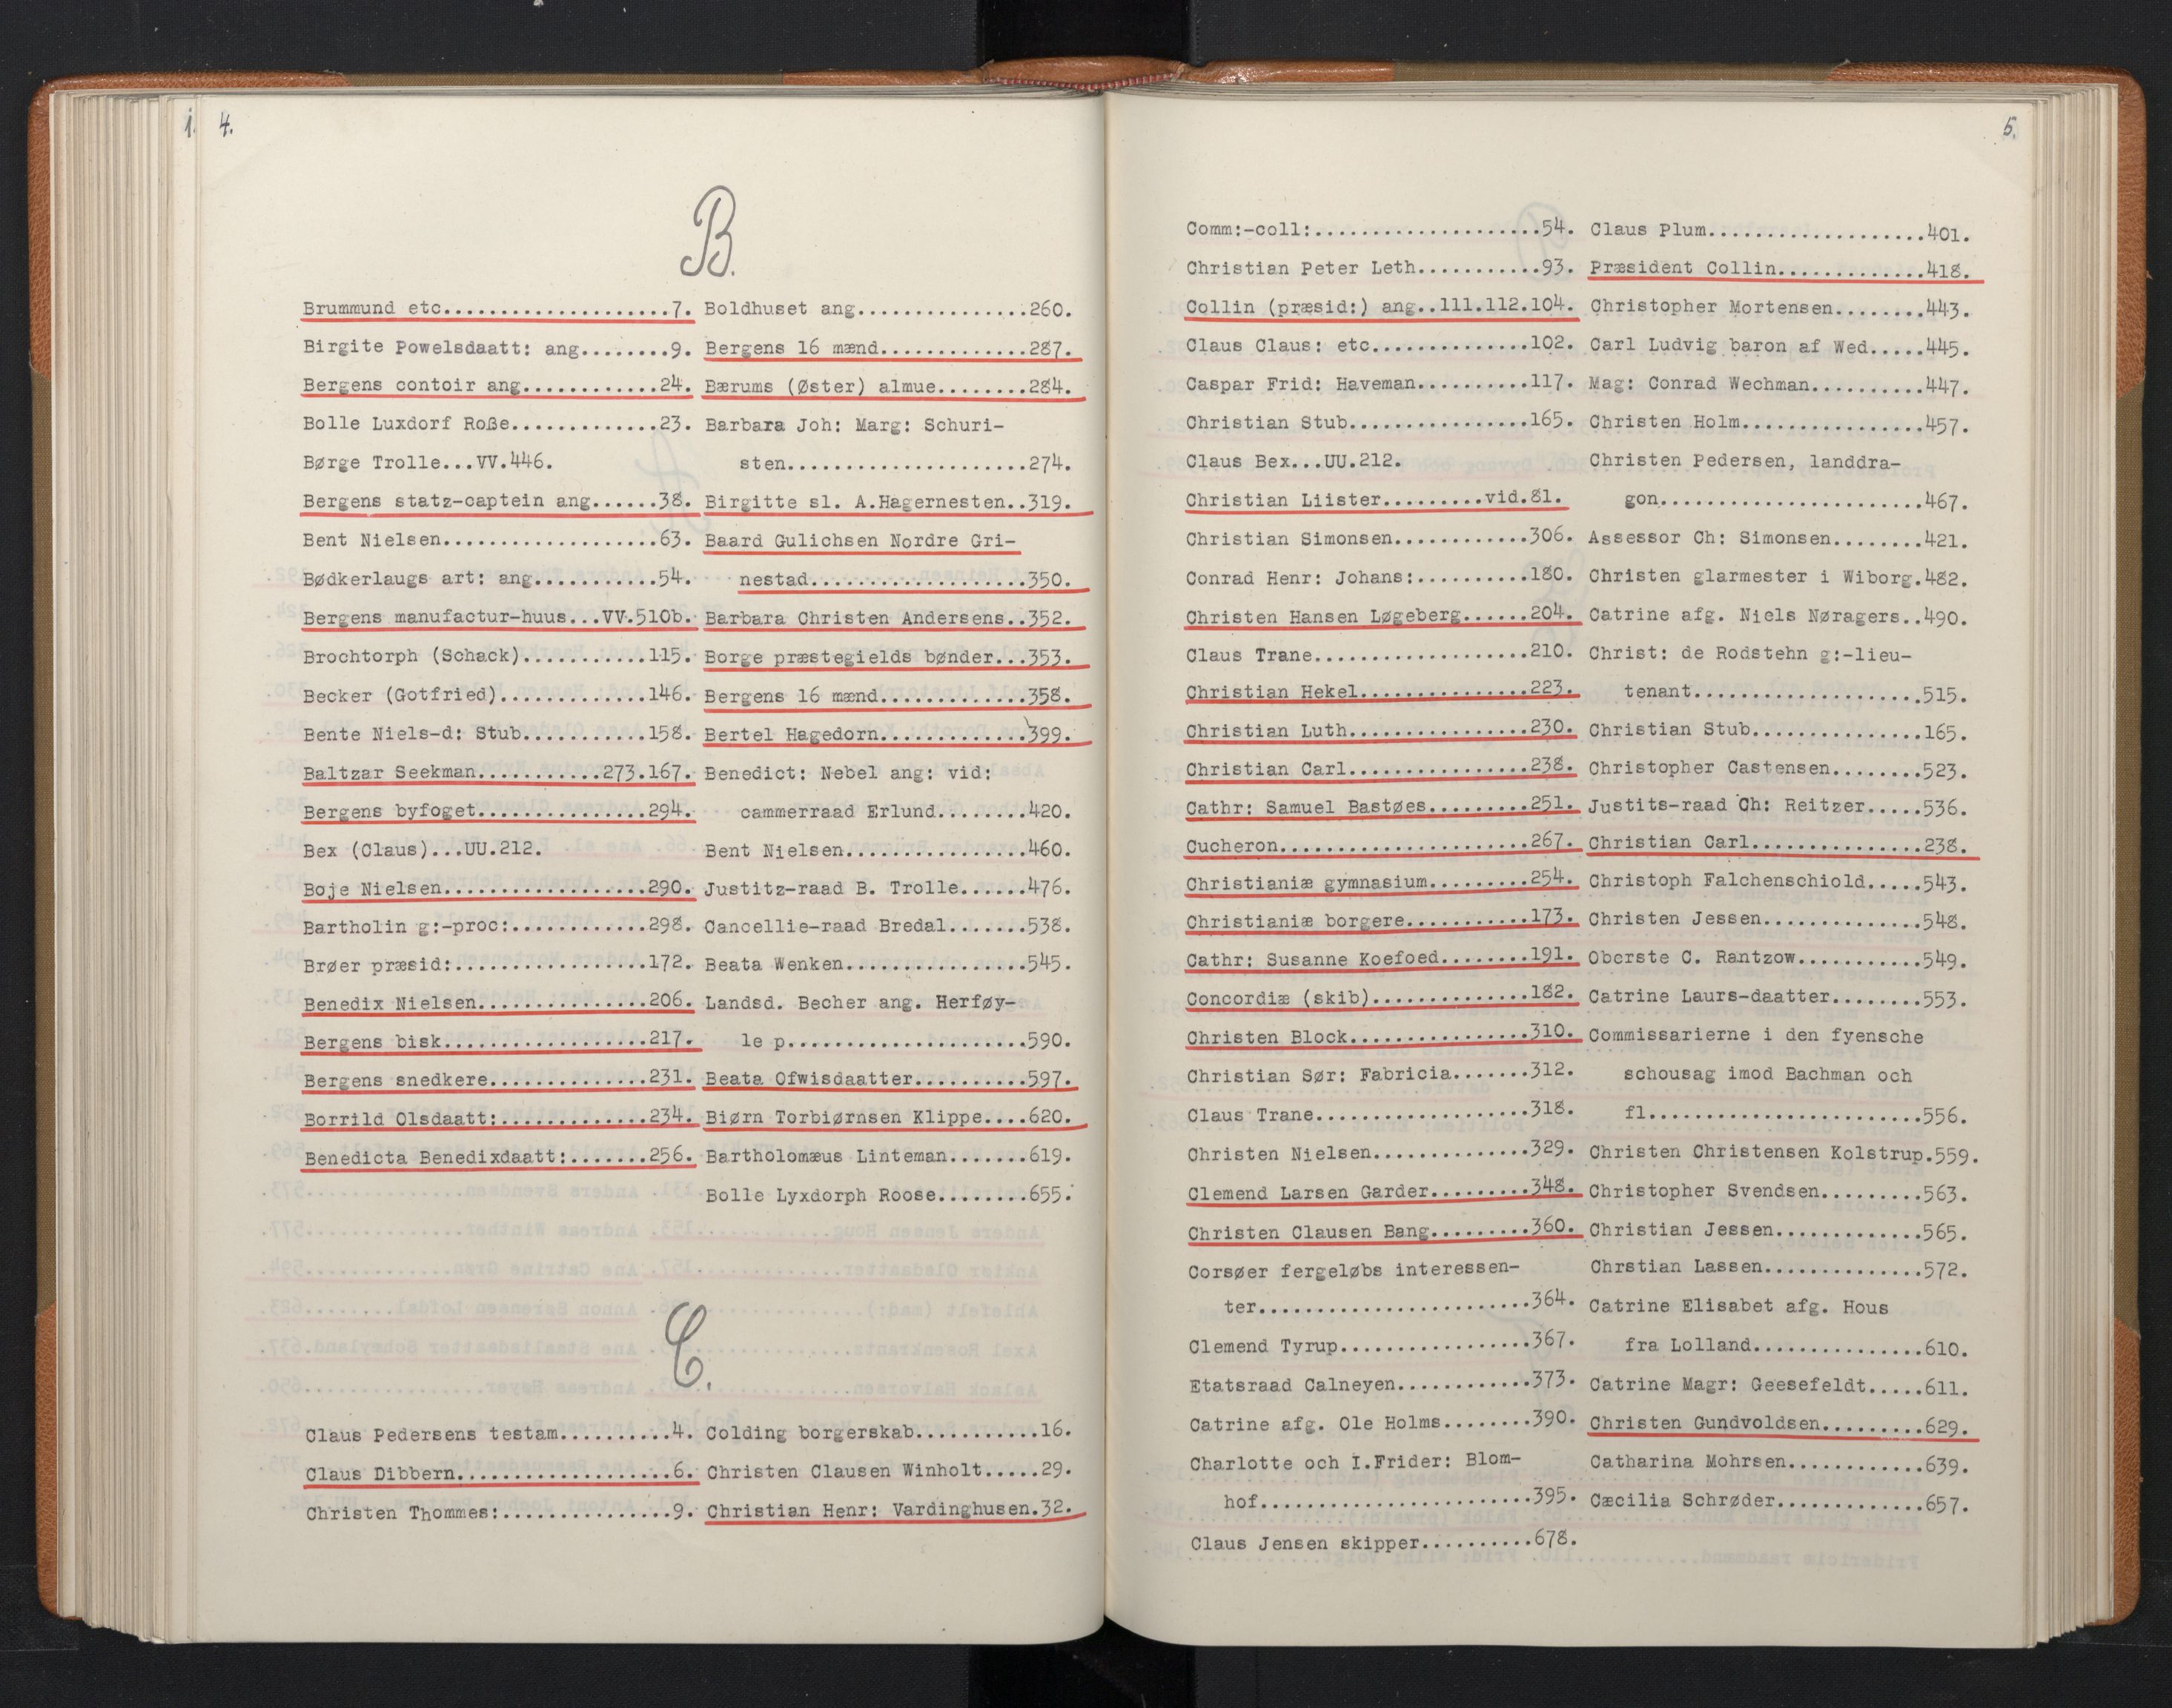 1. 4.
B.
Brummund etc....................7.
Birgite Powelsdaatt: ang........9.
Bergens contoir ang............24.
Bolle Luxdorf Roße.............23.
Børge Trolle...VV.446.
Bergens statz-captein ang......38.
Bent Nielsen...................63.
Bødkerlaugs art: ang...........54.
Bergens manufactur-huus...VV.510b.
Brochtorph (Schack)...........115.
Becker (Gotfried).............146.
Bente Niels-d: Stub...........158.
Baltzar Seekman...........273.167.
Bergens byfoget...............294.
Bex (Claus)...UU.212.
Boje Nielsen..................290.
Bartholin g:-proc:............298.
Brøer præsid:.................172.
Benedix Nielsen...............206.
Bergens bisk..................217.
Bergens snedkere..............231.
Borrild Olsdaatt:.............234.
Benedicta Benedixdaatt:.......256.
Boldhuset ang...............260.
Bergens 16 mænd.............287.
Bærums (Øster) almue........284.
Barbara Joh: Marg: Schuri-
sten.....................274.
Birgitte sl. A.Hagernesten..319.
Baard Gulichsen Nordre Gri-
nestad...................350.
Barbara Christen Andersens..352.
Borge præstegields bønder...353.
Bergens 16 mænd.............358.
Bertel Hagedorn.............399.
Benedict: Nebel ang: vid:
cammerraad Erlund........420.
Bent Nielsen................460.
Justitz-raad B. Trolle......476.
Cancellie-raad Bredal.......538.
Beata Wenken................545.
Landsd. Becher ang. Herføy-
le p.....................590.
Beata Ofwisdaatter..........597.
Biørn Torbiørnsen Klippe....620.
Bartholomæus Linteman.......619.
Bolle Lyxdorph Roose........655.
C.
Claus Pedersens testam..........4.
Claus Dibbern...................6.
Christen Thommes:...............9.
Colding borgerskab...........16.
Christen Clausen Winholt.....29.
Christian Henr: Vardinghusen.32.
5.
Comm:-coll:....................54.
Christian Peter Leth...........93.
Collin (præsid:) ang..111.112.104.
Claus Claus: etc..............102.
Caspar Frid: Haveman..........117.
Christian Stub................165.
Claus Bex...UU.212.
Christian Liister.........vid.81.
Christian Simonsen............306.
Conrad Henr: Johans:..........180.
Christen Hansen Løgeberg......204.
Claus Trane...................210.
Christian Hekel...............223.
Christian Luth................230.
Christian Carl................238.
Cathr: Samuel Bastøes.........251.
Cucheron......................267.
Christianiæ gymnasium.........254.
Christianiæ borgere...........173.
Cathr: Susanne Koefoed........191.
Concordiæ (skib)..............182.
Christen Block................310.
Christian Sør: Fabricia.......312.
Claus Trane...................318.
Christen Nielsen..............329.
Clemend Larsen Garder.........348.
Christen Clausen Bang.........360.
Corsøer fergeløbs interessen-
ter........................364.
Clemend Tyrup.................367.
Etatsraad Calneyen............373.
Catrine afg. Ole Holms........390.
Charlotte och I.Frider: Blom-
hof........................395.
Claus Jensen skipper..........678.
Claus Plum...................401.
Præsident Collin.............418.
Christopher Mortensen........443.
Carl Ludvig baron af Wed.....445.
Mag: Conrad Wechman..........447.
Christen Holm................457.
Christen Pedersen, landdra-
gon.......................467.
Assessor Ch: Simonsen........421.
Christen glarmester i Wiborg.482.
Catrine afg. Niels Nøragers..490.
Christ: de Rodstehn g:-lieu-
tenant....................515.
Christian Stub...............165.
Christopher Castensen........523.
Justits-raad Ch: Reitzer.....536.
Christian Carl...............238.
Christoph Falchenschiold.....543.
Christen Jessen..............548.
Oberste C. Rantzow...........549.
Catrine Laurs-daatter........553.
Commissarierne i den fyensche
schousag imod Bachman och
fl........................556.
Christen Christensen Kolstrup.559.
Christopher Svendsen.........563.
Christian Jessen.............565.
Chrstian Lassen..............572.
Catrine Elisabet afg. Hous
fra Lolland...............610.
Catrine Magr: Geesefeldt.....611.
Christen Gundvoldsen.........629.
Catharina Mohrsen............639.
Cæcilia Schrøder.............657.